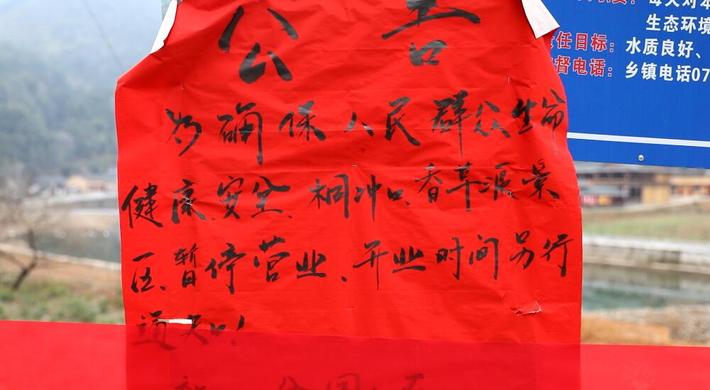 公告
为确保人民群众生命
健康、安全、桐冲口香草源景
区、暂停营业、开业时间另行
通知!
生态环境
责任目标:水质良好、
督电话:乡镇电话07